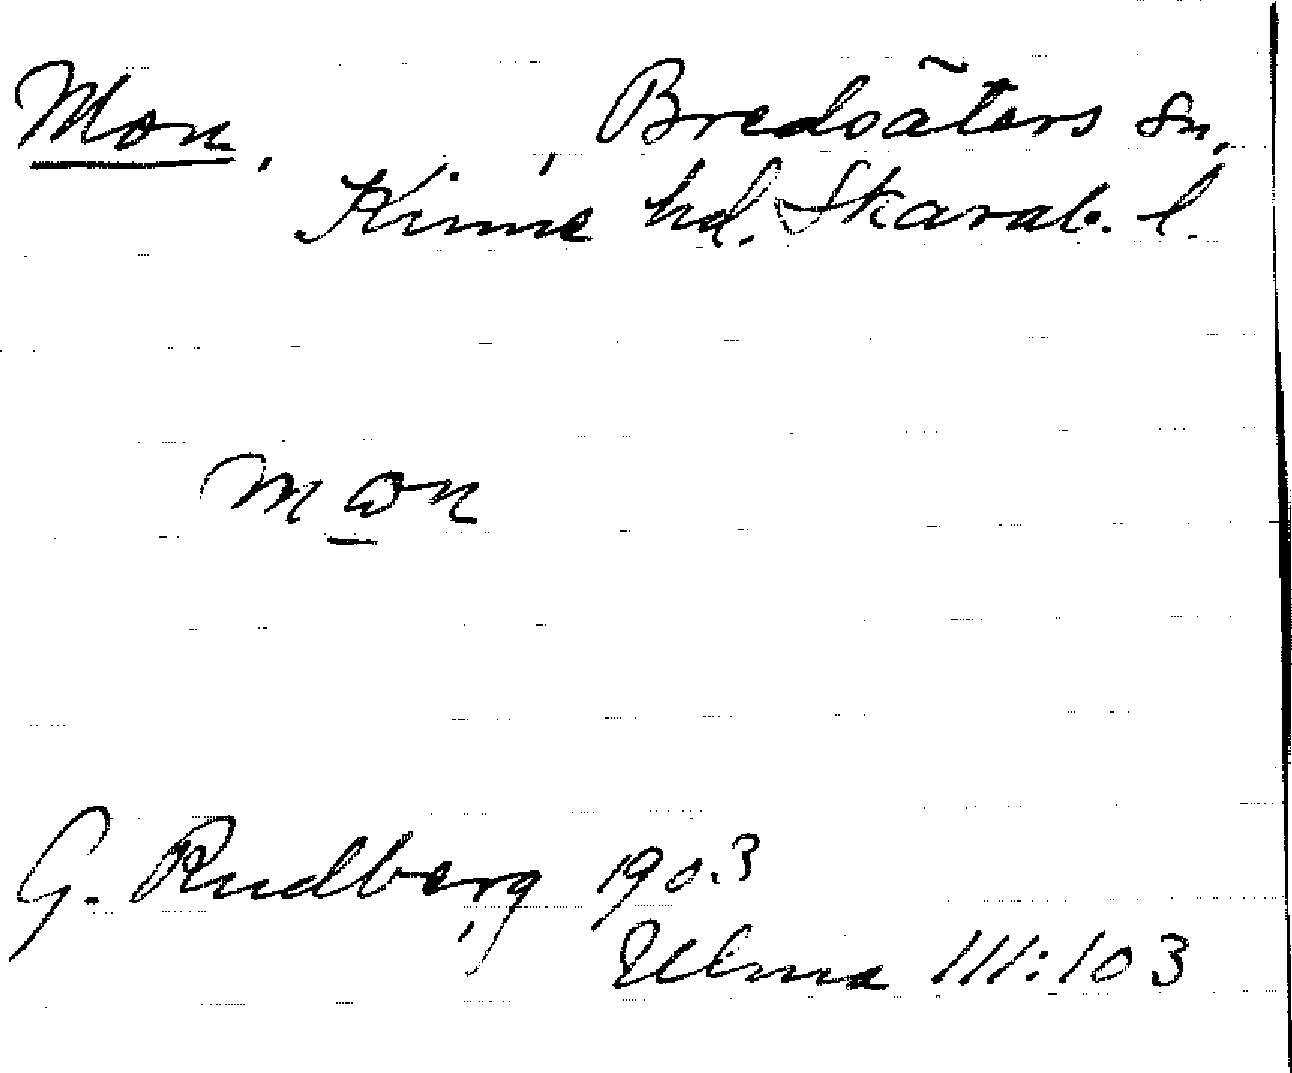 Mon, , Bredsäters sn,
Kinne hd. Skarab. l.
mωn
G. Rudberg, 1903
Ulma 111:103